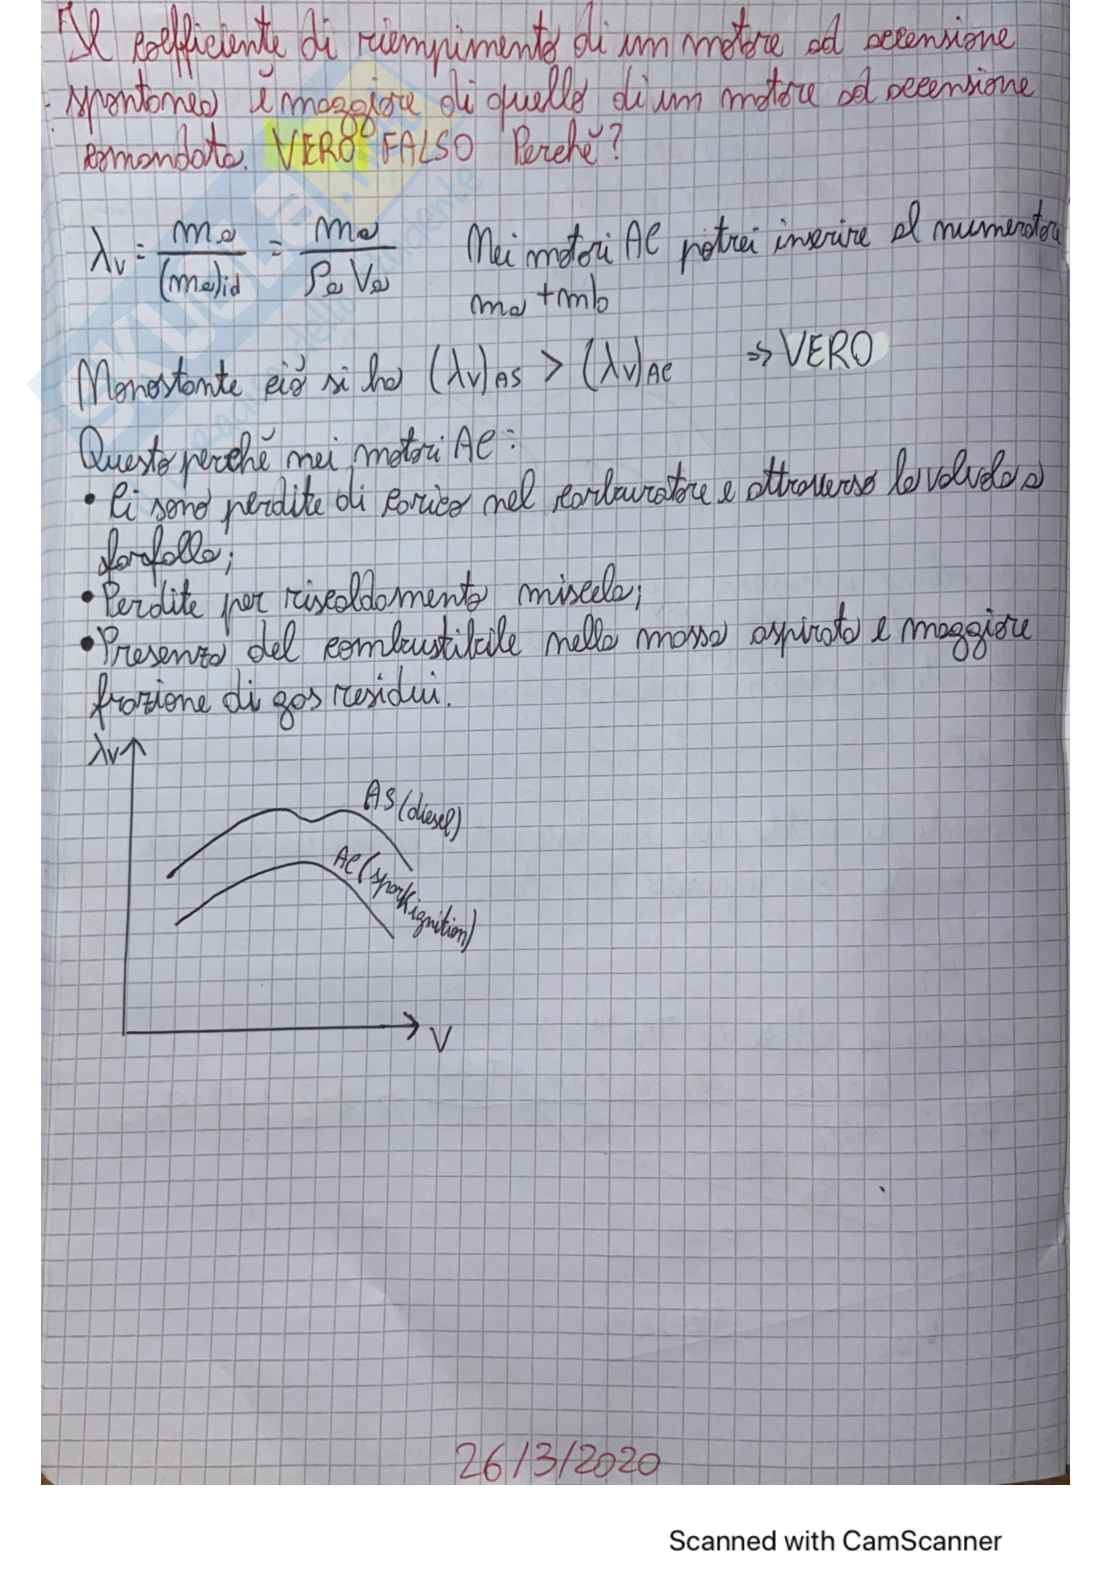 Il coefficiente di riempimento di un motore ad accensione
spontanea è maggiore di quello di un motore ad accensione
comandata. VERO o FALSO Perchè?
λv = ma/(ma)id = ma/ρa Va Nei motori AC potrei inserire al numeratore
ma + mb
Nonostante ciò si ha (λv)AS > (λv)AC ⇒ VERO
Questo perchè nei motori AC:
• Ci sono perdite di carico nel carburatore e attraverso la valvola a
farfalla;
• Perdite per riscaldamento miscela;
• Presenza del combustibile nella massa aspirata e maggiore
frazione di gas residui.
λv
AS (diesel)
AC (spark ignition)
V
26/3/2020
Scanned with CamScanner